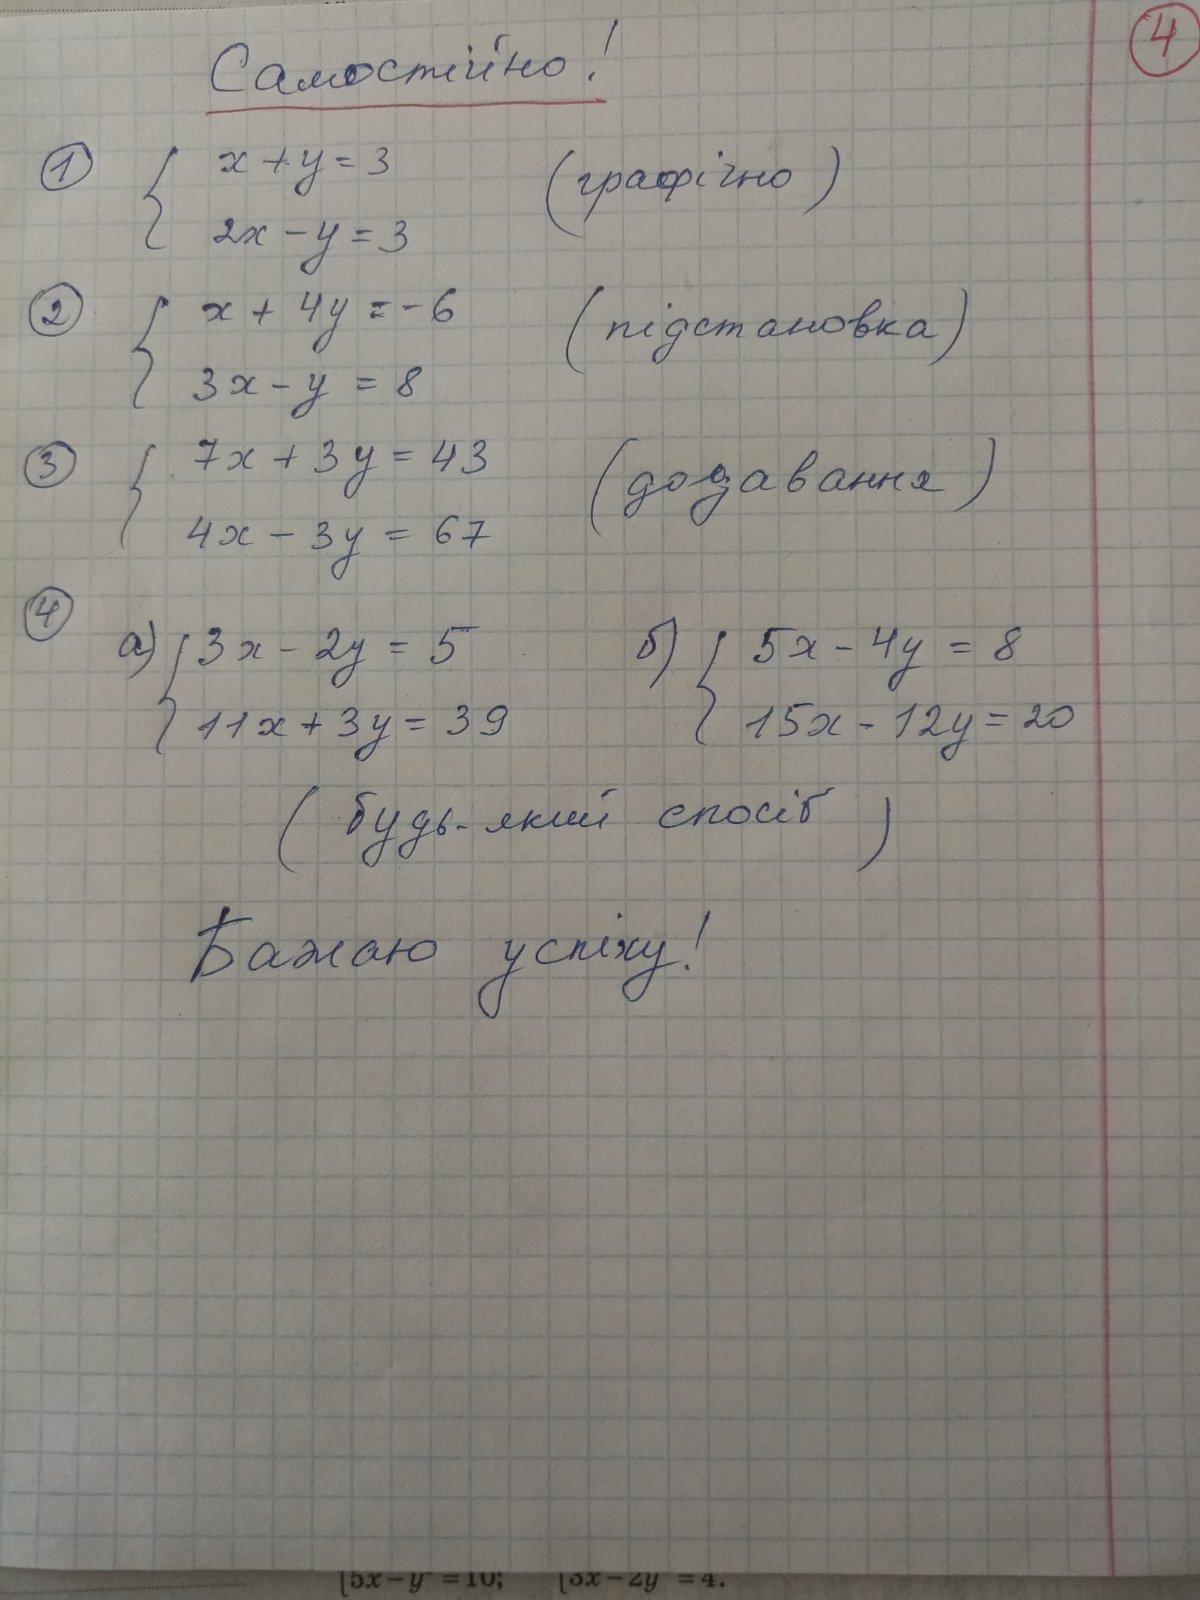 4
Самостійно!
1 { x + y = 3
2x - y = 3 (графічно)
2 { x + 4y = -6
3x - y = 8 (підстановка)
3 { 7x + 3y = 43
4x - 3y = 67 (додавання)
4
а) { 3x - 2y = 5
11x + 3y = 39
б) { 5x - 4y = 8
15x - 12y = 20
(будь-який спосіб)
Бажаю успіху!
{5x - y = 10; {3x - 2y = 4.